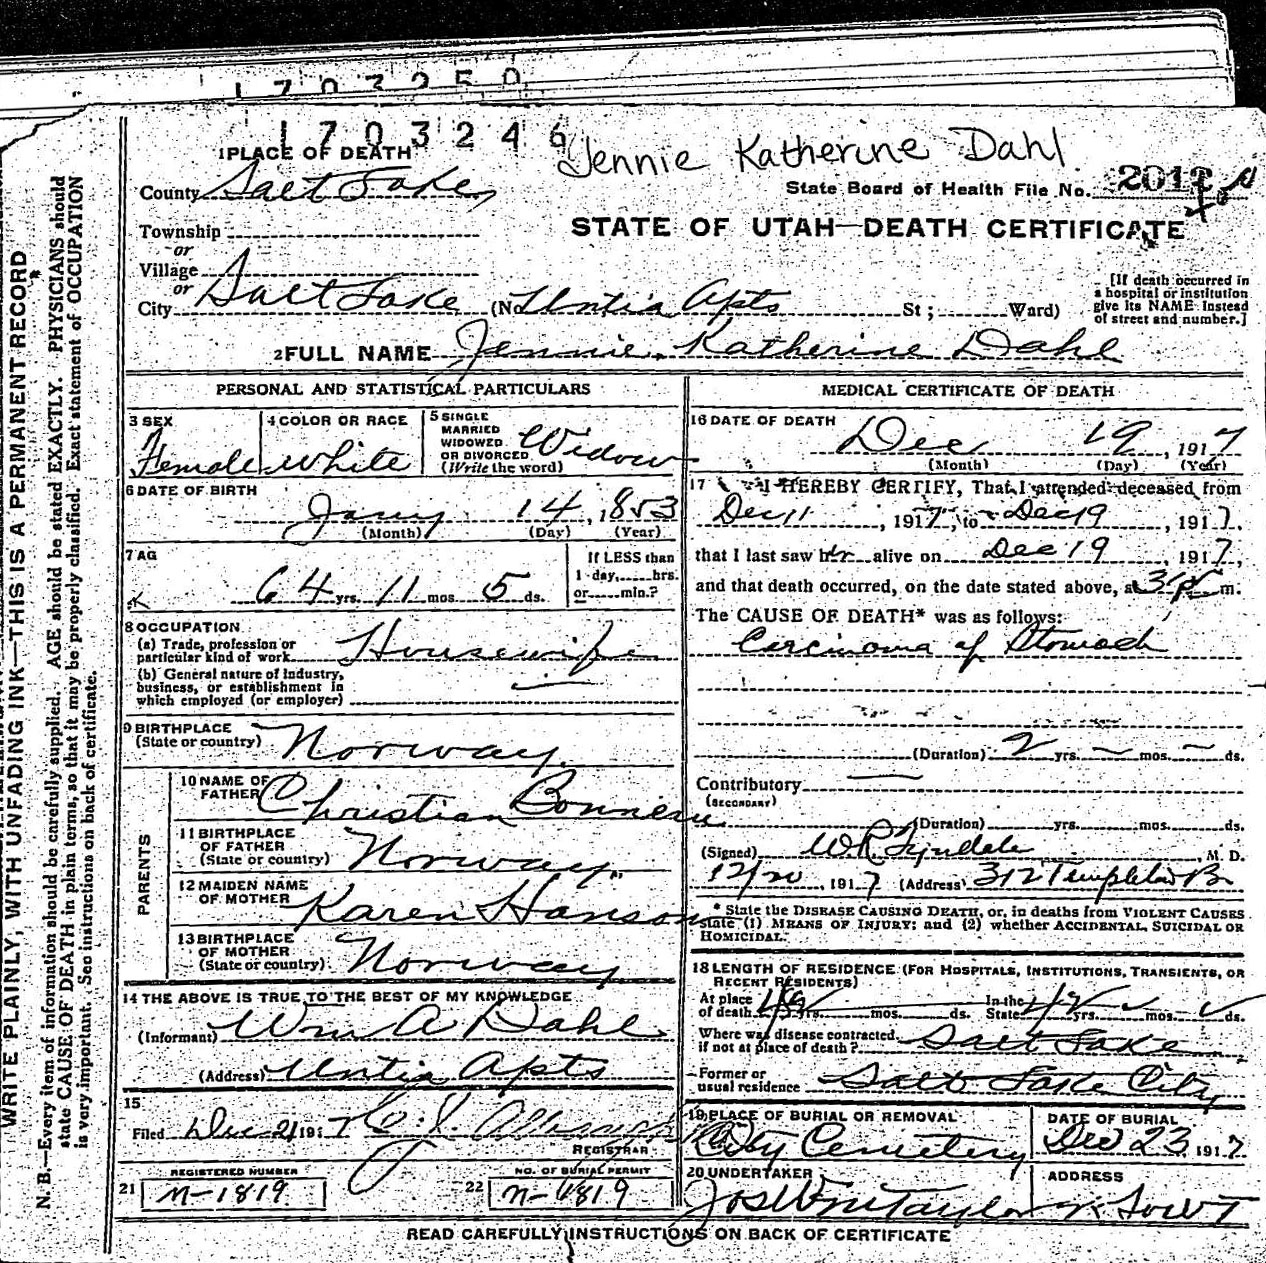 1703250
1703246
Jennie Katherine Dahl
1 PLACE OF DEATH
County Salt Lake
State Board of Health File No. 2012
Township
or
Village
or
City Salt Lake (No Untia Apts St; Ward)
STATE OF UTAH—DEATH CERTIFICATE
[If death occurred in
a hospital or institution
give its NAME instead
of street and number.]
2 FULL NAME Jennie Katherine Dahl
PERSONAL AND STATISTICAL PARTICULARS
3 SEX Female
4 COLOR OR RACE white
5 SINGLE
MARRIED
WIDOWED
OR DIVORCED
(Write the word) Widow
6 DATE OF BIRTH
Jany 14, 1853
(Month) (Day) (Year)
7 AG
64 yrs. 11 mos. 5 ds.
If LESS than
1 day, hrs.
or min.?
8 OCCUPATION
(a) Trade, profession or
particular kind of work Housewife
(b) General nature of industry,
business, or establishment in
which employed (or employer)
9 BIRTHPLACE
(State or country) Norway
PARENTS
10 NAME OF
FATHER Christian Bonneru
11 BIRTHPLACE
OF FATHER
(State or country) Norway
12 MAIDEN NAME
OF MOTHER Karen Hanson
13 BIRTHPLACE
OF MOTHER
(State or country) Norway
14 THE ABOVE IS TRUE TO THE BEST OF MY KNOWLEDGE
(Informant) Wm A Dahl
(Address) Untia Apts
15
Filed Dec 21 1917
REGISTRAR
REGISTERED NUMBER
21 N-1819
NO. OF BURIAL PERMIT
22 N-1819
MEDICAL CERTIFICATE OF DEATH
16 DATE OF DEATH
Dec 19, 1917
(Month) (Day) (Year)
17 I HEREBY CERTIFY, That I attended deceased from
Dec 11, 1917, to Dec 19, 1917,
that I last saw her alive on Dec 19 1917,
and that death occurred, on the date stated above, a 3 P m.
The CAUSE OF DEATH* was as follows:
Carcinoma of Stomach
(Duration) 2 yrs. — mos. — ds.
Contributory —
(SECONDARY)
(Duration) yrs. mos. ds.
(Signed) W R Tyndale, M. D.
12/20, 1917 (Address) 312 Templeton B
* State the DISEASE CAUSING DEATH, or, in deaths from VIOLENT CAUSES
state (1) MEANS OF INJURY; and (2) whether ACCIDENTAL, SUICIDAL OR
HOMICIDAL.
18 LENGTH OF RESIDENCE (FOR HOSPITALS, INSTITUTIONS, TRANSIENTS, OR
RECENT RESIDENTS)
At place
of death yrs. mos. ds. In the
State yrs. mos. ds.
Where was disease contracted,
if not at place of death? Salt Lake
Former or
usual residence Salt Lake City
19 PLACE OF BURIAL OR REMOVAL
City Cemetery
DATE OF BURIAL
Dec 23 1917
20 UNDERTAKER
Jos Wm Taylor
ADDRESS
READ CAREFULLY INSTRUCTIONS ON BACK OF CERTIFICATE
WRITE PLAINLY, WITH UNFADING INK—THIS IS A PERMANENT RECORD
N. B.—Every item of information should be carefully supplied. AGE should be stated EXACTLY. PHYSICIANS should
state CAUSE OF DEATH in plain terms, so that it may be properly classified. Exact statement of OCCUPATION
is very important. See instructions on back of certificate.